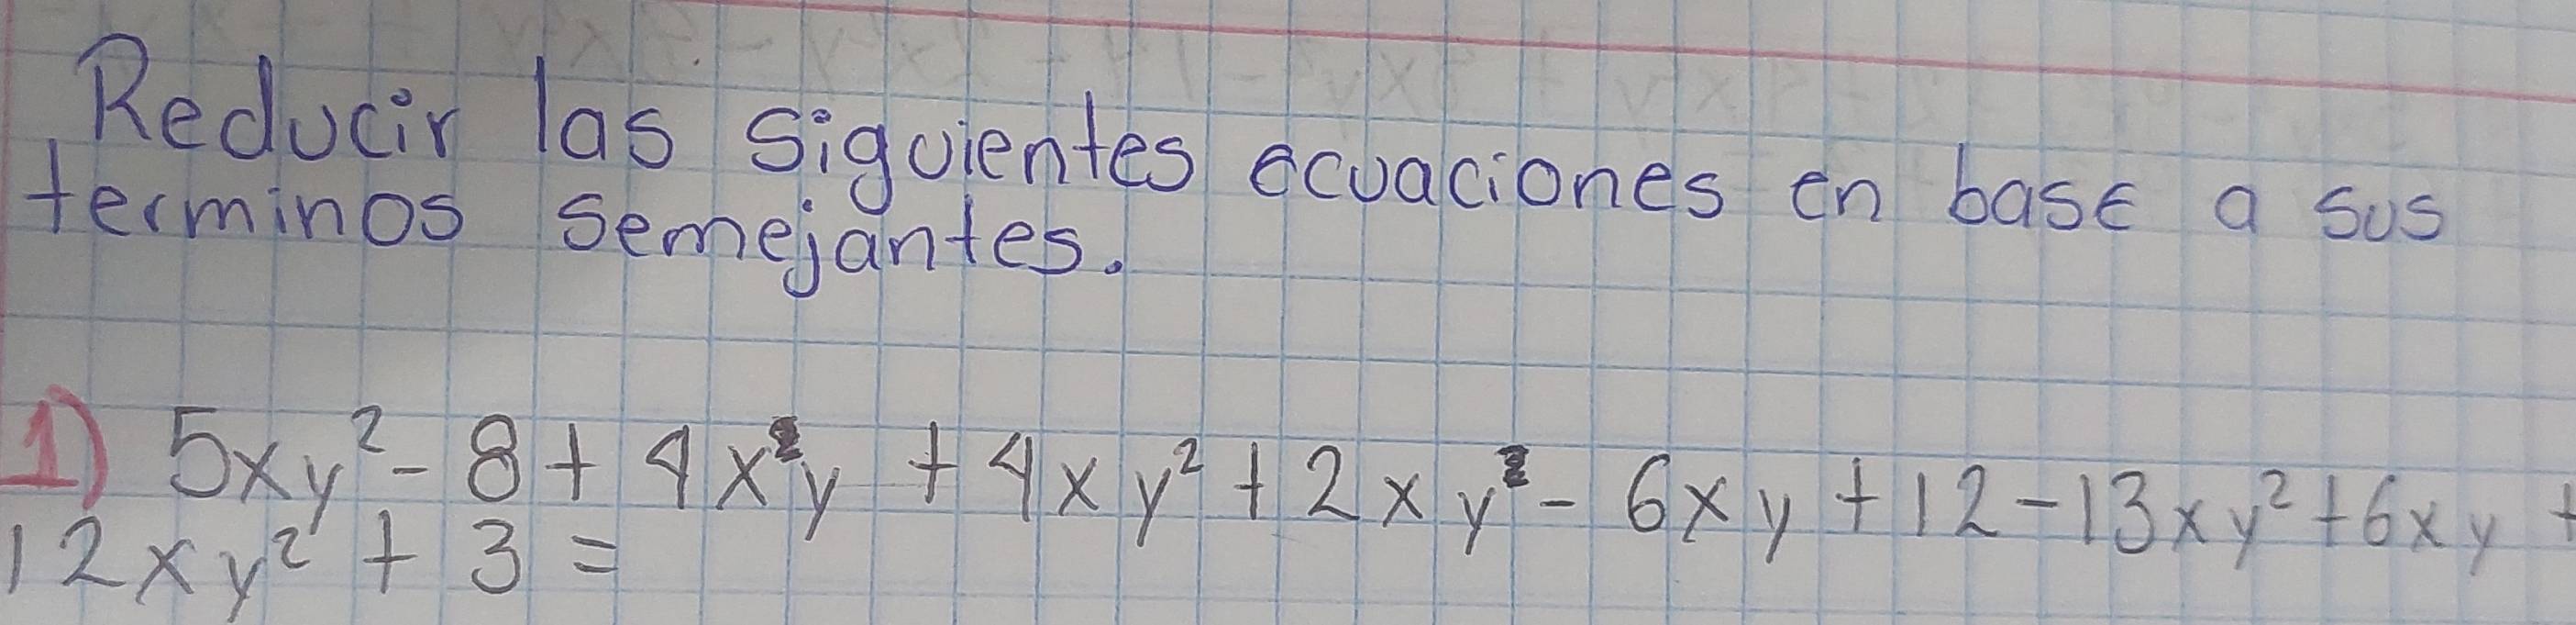 Reducir las siguientes ecuaciones en base a sus
terminos semejantes.
1) 5xy² - 8 + 4x²y + 4xy² + 2xy² - 6xy + 12 - 13xy² + 6xy +
12xy² + 3 =